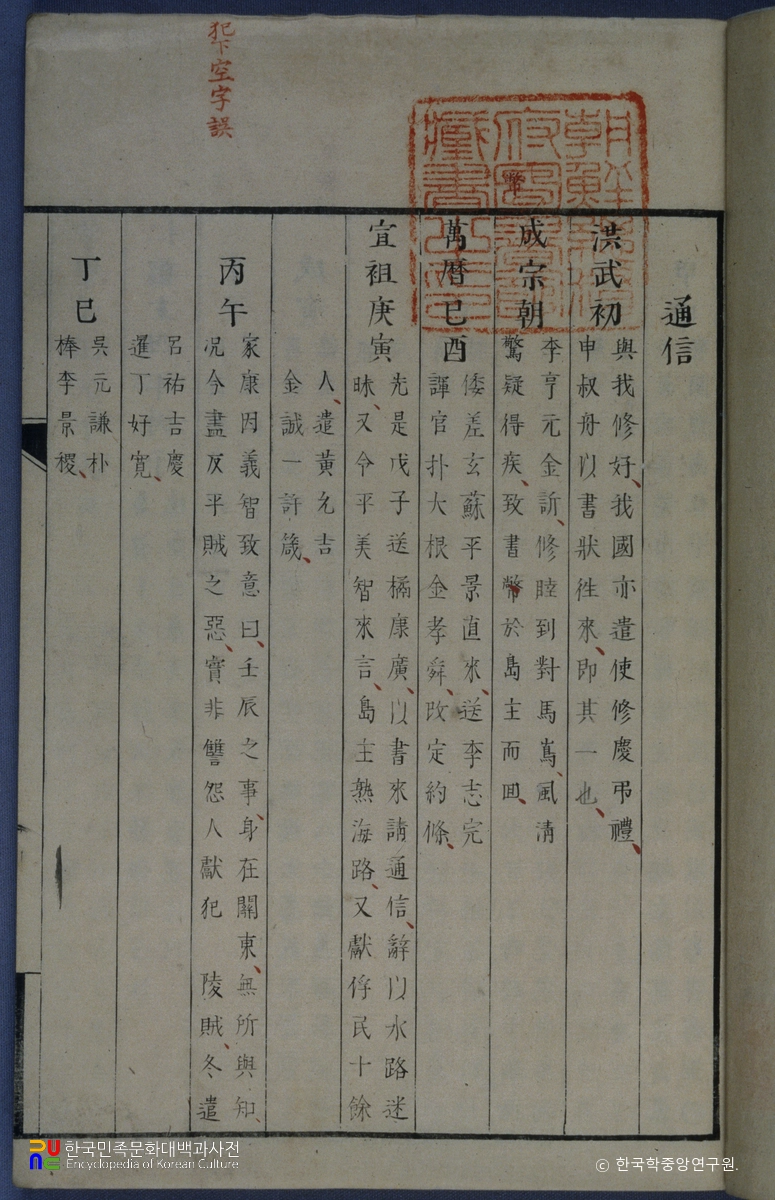 犯下空字誤
通信
洪武初
與我修好我國亦遣使修慶弔禮
申叔舟以書狀徃來即其一也
成宗朝
李亨元金訢修睦到對馬嶌風淸
驚疑得疾致書幣於島主而囬
幣
萬曆己酉
倭差玄蘇平景直來送李志完
譯官朴大根金孝舜改定約條
宣祖庚寅
先是戊子送橘康廣以書來請通信辭以水路迷
昧又令平美智來言島主熟海路又獻俘民十餘
人遣黃允吉
金誠一許筬
丙午
家康因義智致意曰壬辰之事身在關東無所與知
况今盡反平賊之惡實非讐怨人獻犯 陵賊冬遣
呂祐吉慶
暹丁好寬
丁巳
吳元謙朴
榛李景稷
한국민족문화대백과사전
Encyclopedia of Korean Culture
© 한국학중앙연구원.